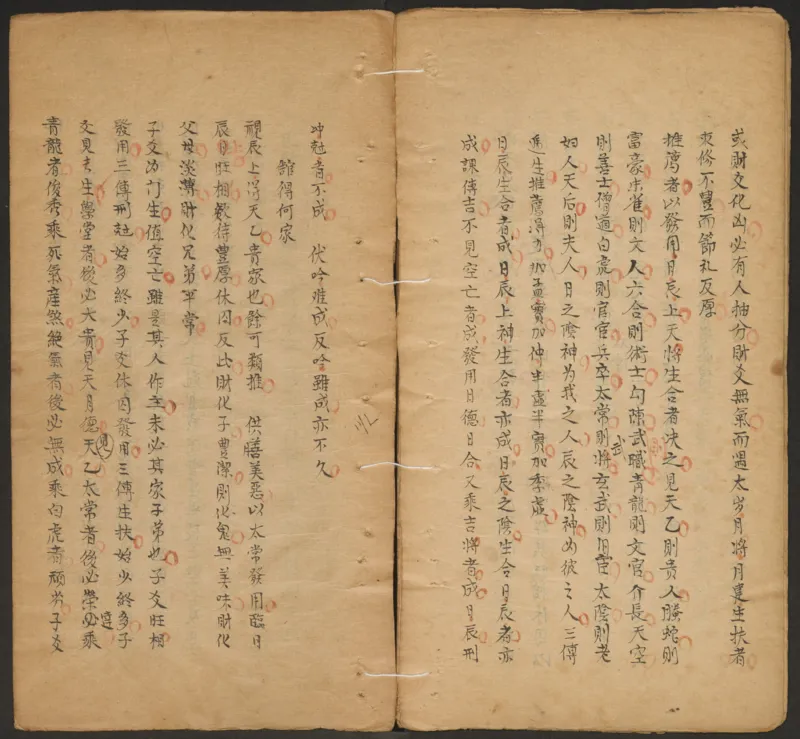 或財交化凶必有人抽分財爻無氣而遇太歲月將月建生扶者
束修不豐而節礼反厚
推薦者以發用日辰上天將生合者决之見天乙則貴人螣蛇則
富豪朱雀則文人六合則術士勾陳武職青龍則文官介長天空
則善士僧道白虎則官兵卒太常則武將玄武則旧宦太陰則老
妇人天后則夫人日之陰神为我之人辰之陰神为彼之人三傳
進生推薦得力加孟實加仲半虛半實加季虛
日辰生合者成日辰上神生合者亦成日辰之陰生合日辰者亦
成課傳吉不見空亡者成發用日德日合又乘吉將者成日辰刑
冲尅者不成 伏吟难成反吟雖成亦不久
舘得何家
視辰上得天乙貴家也餘可類推 供膳美惡以太常發用臨日
辰日旺相欵待豊厚休囚反此財化子豊潔財化鬼無美味財化
父母淡薄財化兄弟平常
子爻为门生值空亡雖是其人作主未必其家子弟也子爻旺相
發用三傳刑尅始多終少子爻休囚發用三傳生扶始少終多子
爻見長生學堂者後必大貴見天月德天乙太常者後必榮必乘
青龍者俊秀乘死氣產煞絕氣者後必無成乘白虎者頑劣子爻